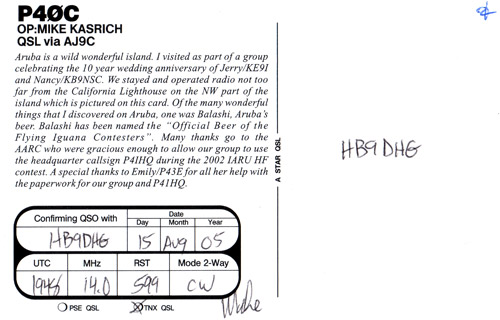 P4ØC
OP:MIKE KASRICH
QSL via AJ9C
Aruba is a wild wonderful island. I visited as part of a group
celebrating the 10 year wedding anniversary of Jerry/KE9I
and Nancy/KB9NSC. We stayed and operated radio not too
far from the California Lighthouse on the NW part of the
island which is pictured on this card. Of the many wonderful
things that I discovered on Aruba, one was Balashi, Aruba's
beer. Balashi has been named the "Official Beer of the
Flying Iguana Contesters". Many thanks go to the
AARC who were gracious enough to allow our group to use
the headquarter callsign P4IHQ during the 2002 IARU HF
contest. A special thanks to Emily/P43E for all her help with
the paperwork for our group and P41HQ.
A STAR QSL
HB9DHG
Confirming QSO with
Date
Day Month Year
HB9DHG 15 Aug 05
UTC MHz RST Mode 2-Way
1948 14.0 599 CW
PSE QSL TNX QSL
Mike